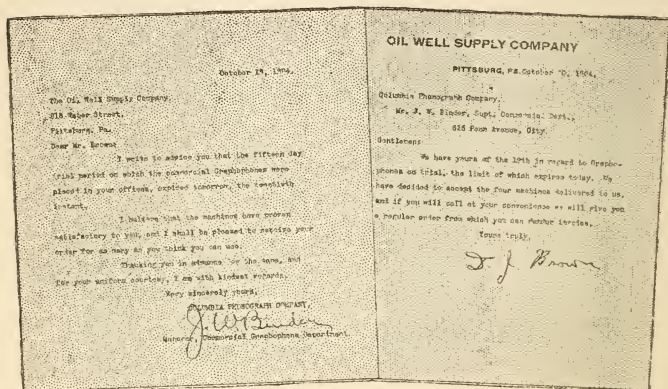 October 19, 1904.
The Oil Well Supply Company,
215 Water Street,
Pittsburg, Pa.
Dear Mr. Brown:
I write to advise you that the fifteen day
trial period on which the commercial Graphophones were
placed in your offices, expires tomorrow, the twentieth
instant.
I believe that the machines have proven
satisfactory to you, and I shall be pleased to receive your
order for as many as you think you can use.
Thanking you in advance for the same, and
for your uniform courtesy, I am with kindest regards,
Very sincerely yours,
COLUMBIA PHONOGRAPH COMPANY,
J. W. Binder
Manager, Commercial Graphophone Department.
OIL WELL SUPPLY COMPANY
PITTSBURG, PA. October 20, 1904.
Columbia Phonograph Company,
Mr. J. W. Binder, Supt. Commercial Dept.,
615 Penn Avenue, City.
Gentlemen:
We have yours of the 19th in regard to Grapho-
phones on trial, the limit of which expires today. We
have decided to accept the four machines delivered to us,
and if you will call at your convenience we will give you
a regular order from which you can render invoice.
Yours truly,
D. J. Brown